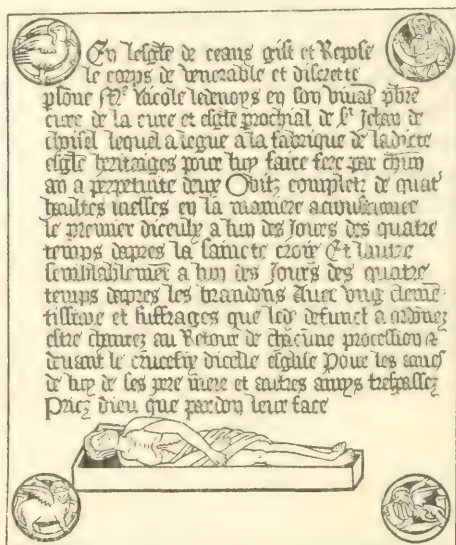 En lesglē de ceans gist et Repose
le corps de venerable et discrette
psoñe Mᵉ Nicole ledenoys en son vivāt p̄bre
cure de la cure et esglē prochial de sᵗ Jehan de
choisel lequel a legue a la fabrique de ladicte
esglē heritaiges pour luy faire fere par chūn
an a perpetuite deux Obitz completz de quatˀ
haultes messes en la maniere acoustumee
le premier diceulx a lun des Jours des quatre
temps dapres la saincte croix Et lautre
semblablemēt a lun des Jours des quatre
temps dapres les brandons Avec ung clemē-
tissime et suffrages que led defunct a ordōnez
estre chantez au Retour de chacune procession et
devant le crucefix dicelle esglise Pour les ames
de luy de ses pere mere et autres amys trespassez
Priez dieu que pardon leur face